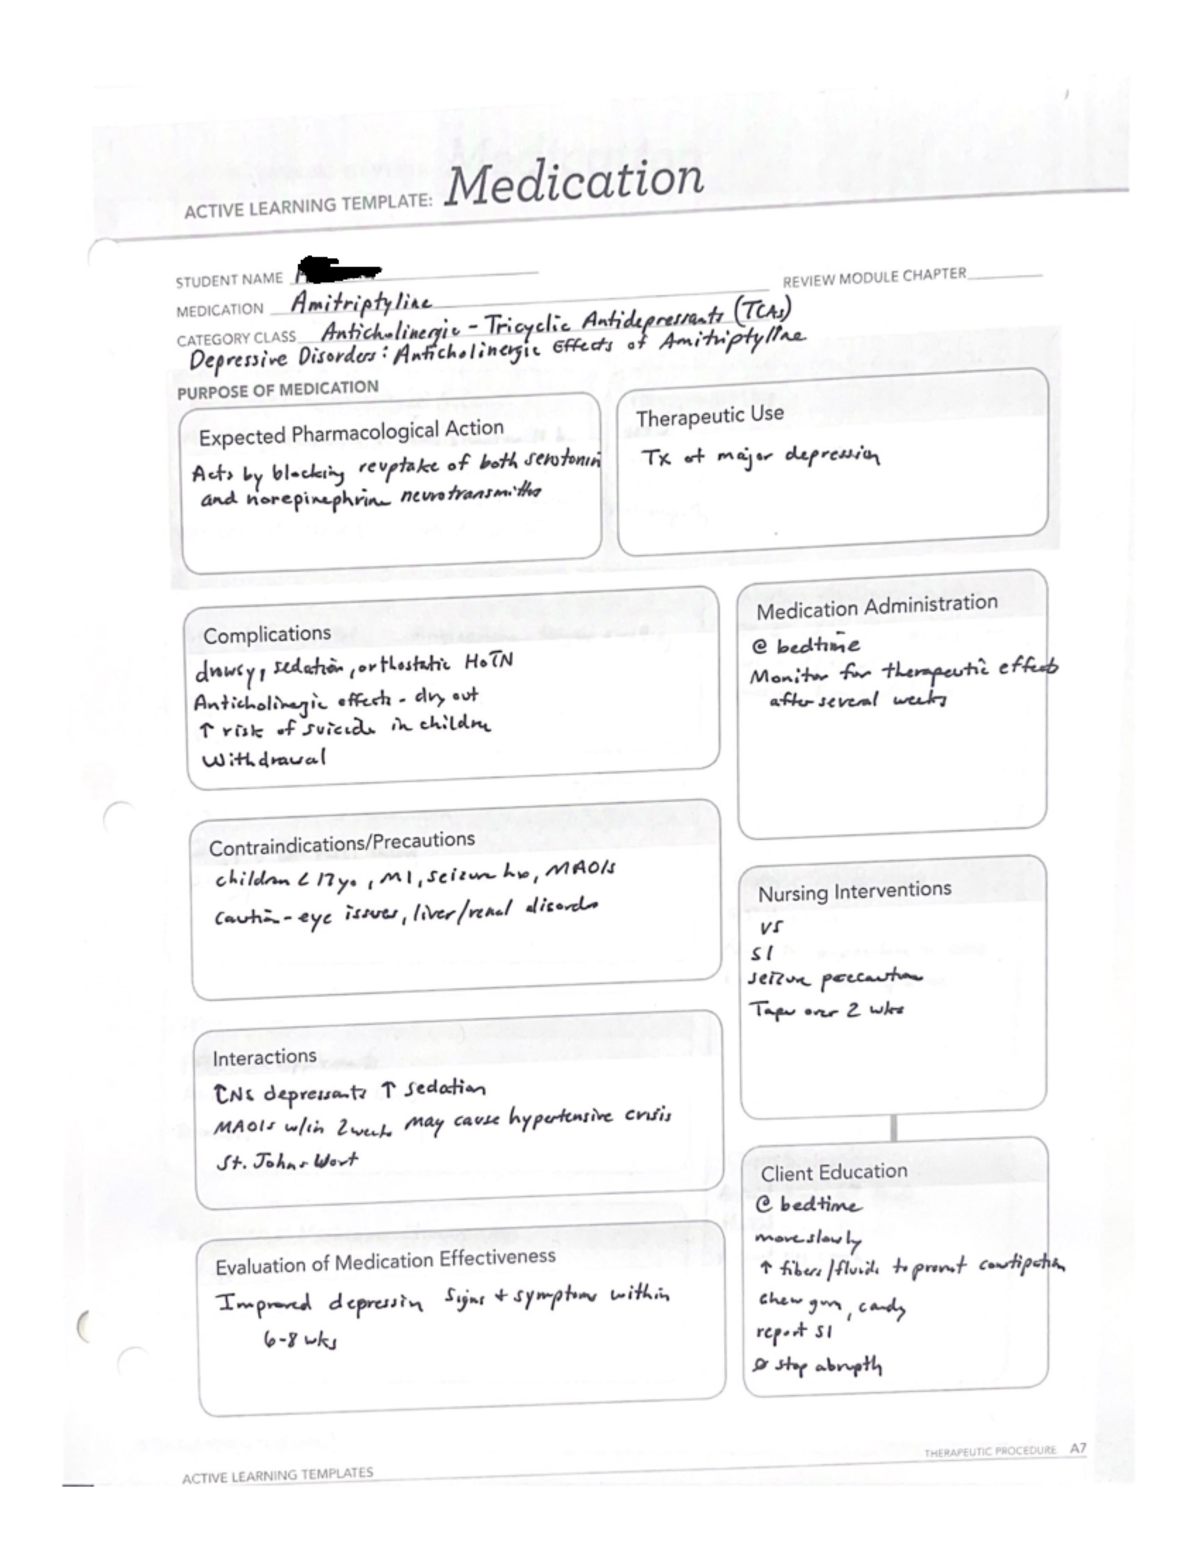 ACTIVE LEARNING TEMPLATE: Medication
STUDENT NAME
REVIEW MODULE CHAPTER
MEDICATION Amitriptyline
CATEGORY CLASS Anticholinergic - Tricyclic Antidepressants (TCAs)
Depressive Disorders: Anticholinergic Effects of Amitriptyline
PURPOSE OF MEDICATION
Expected Pharmacological Action
Acts by blocking reuptake of both serotonin
and norepinephrine neurotransmitters
Therapeutic Use
Tx of major depression
Complications
drowsy, sedation, orthostatic HoTN
Anticholinergic effects - dry out
↑ risk of suicide in children
Withdrawal
Medication Administration
@ bedtime
Monitor for therapeutic effects
after several weeks
Contraindications/Precautions
children < 12 yo, MI, seizure hx, MAOIs
Caution - eye issues, liver/renal disorder
Nursing Interventions
VS
SI
seizure precaution
Taper over 2 wks
Interactions
CNS depressants ↑ sedation
MAOIs w/in 2 weeks may cause hypertensive crisis
St. Johns Wort
Client Education
@ bedtime
move slowly
↑ fibers/fluids to prevent constipation
chew gum, candy
report SI
Ø stop abruptly
Evaluation of Medication Effectiveness
Improved depression signs + symptoms within
6-8 wks
ACTIVE LEARNING TEMPLATES
THERAPEUTIC PROCEDURE A7